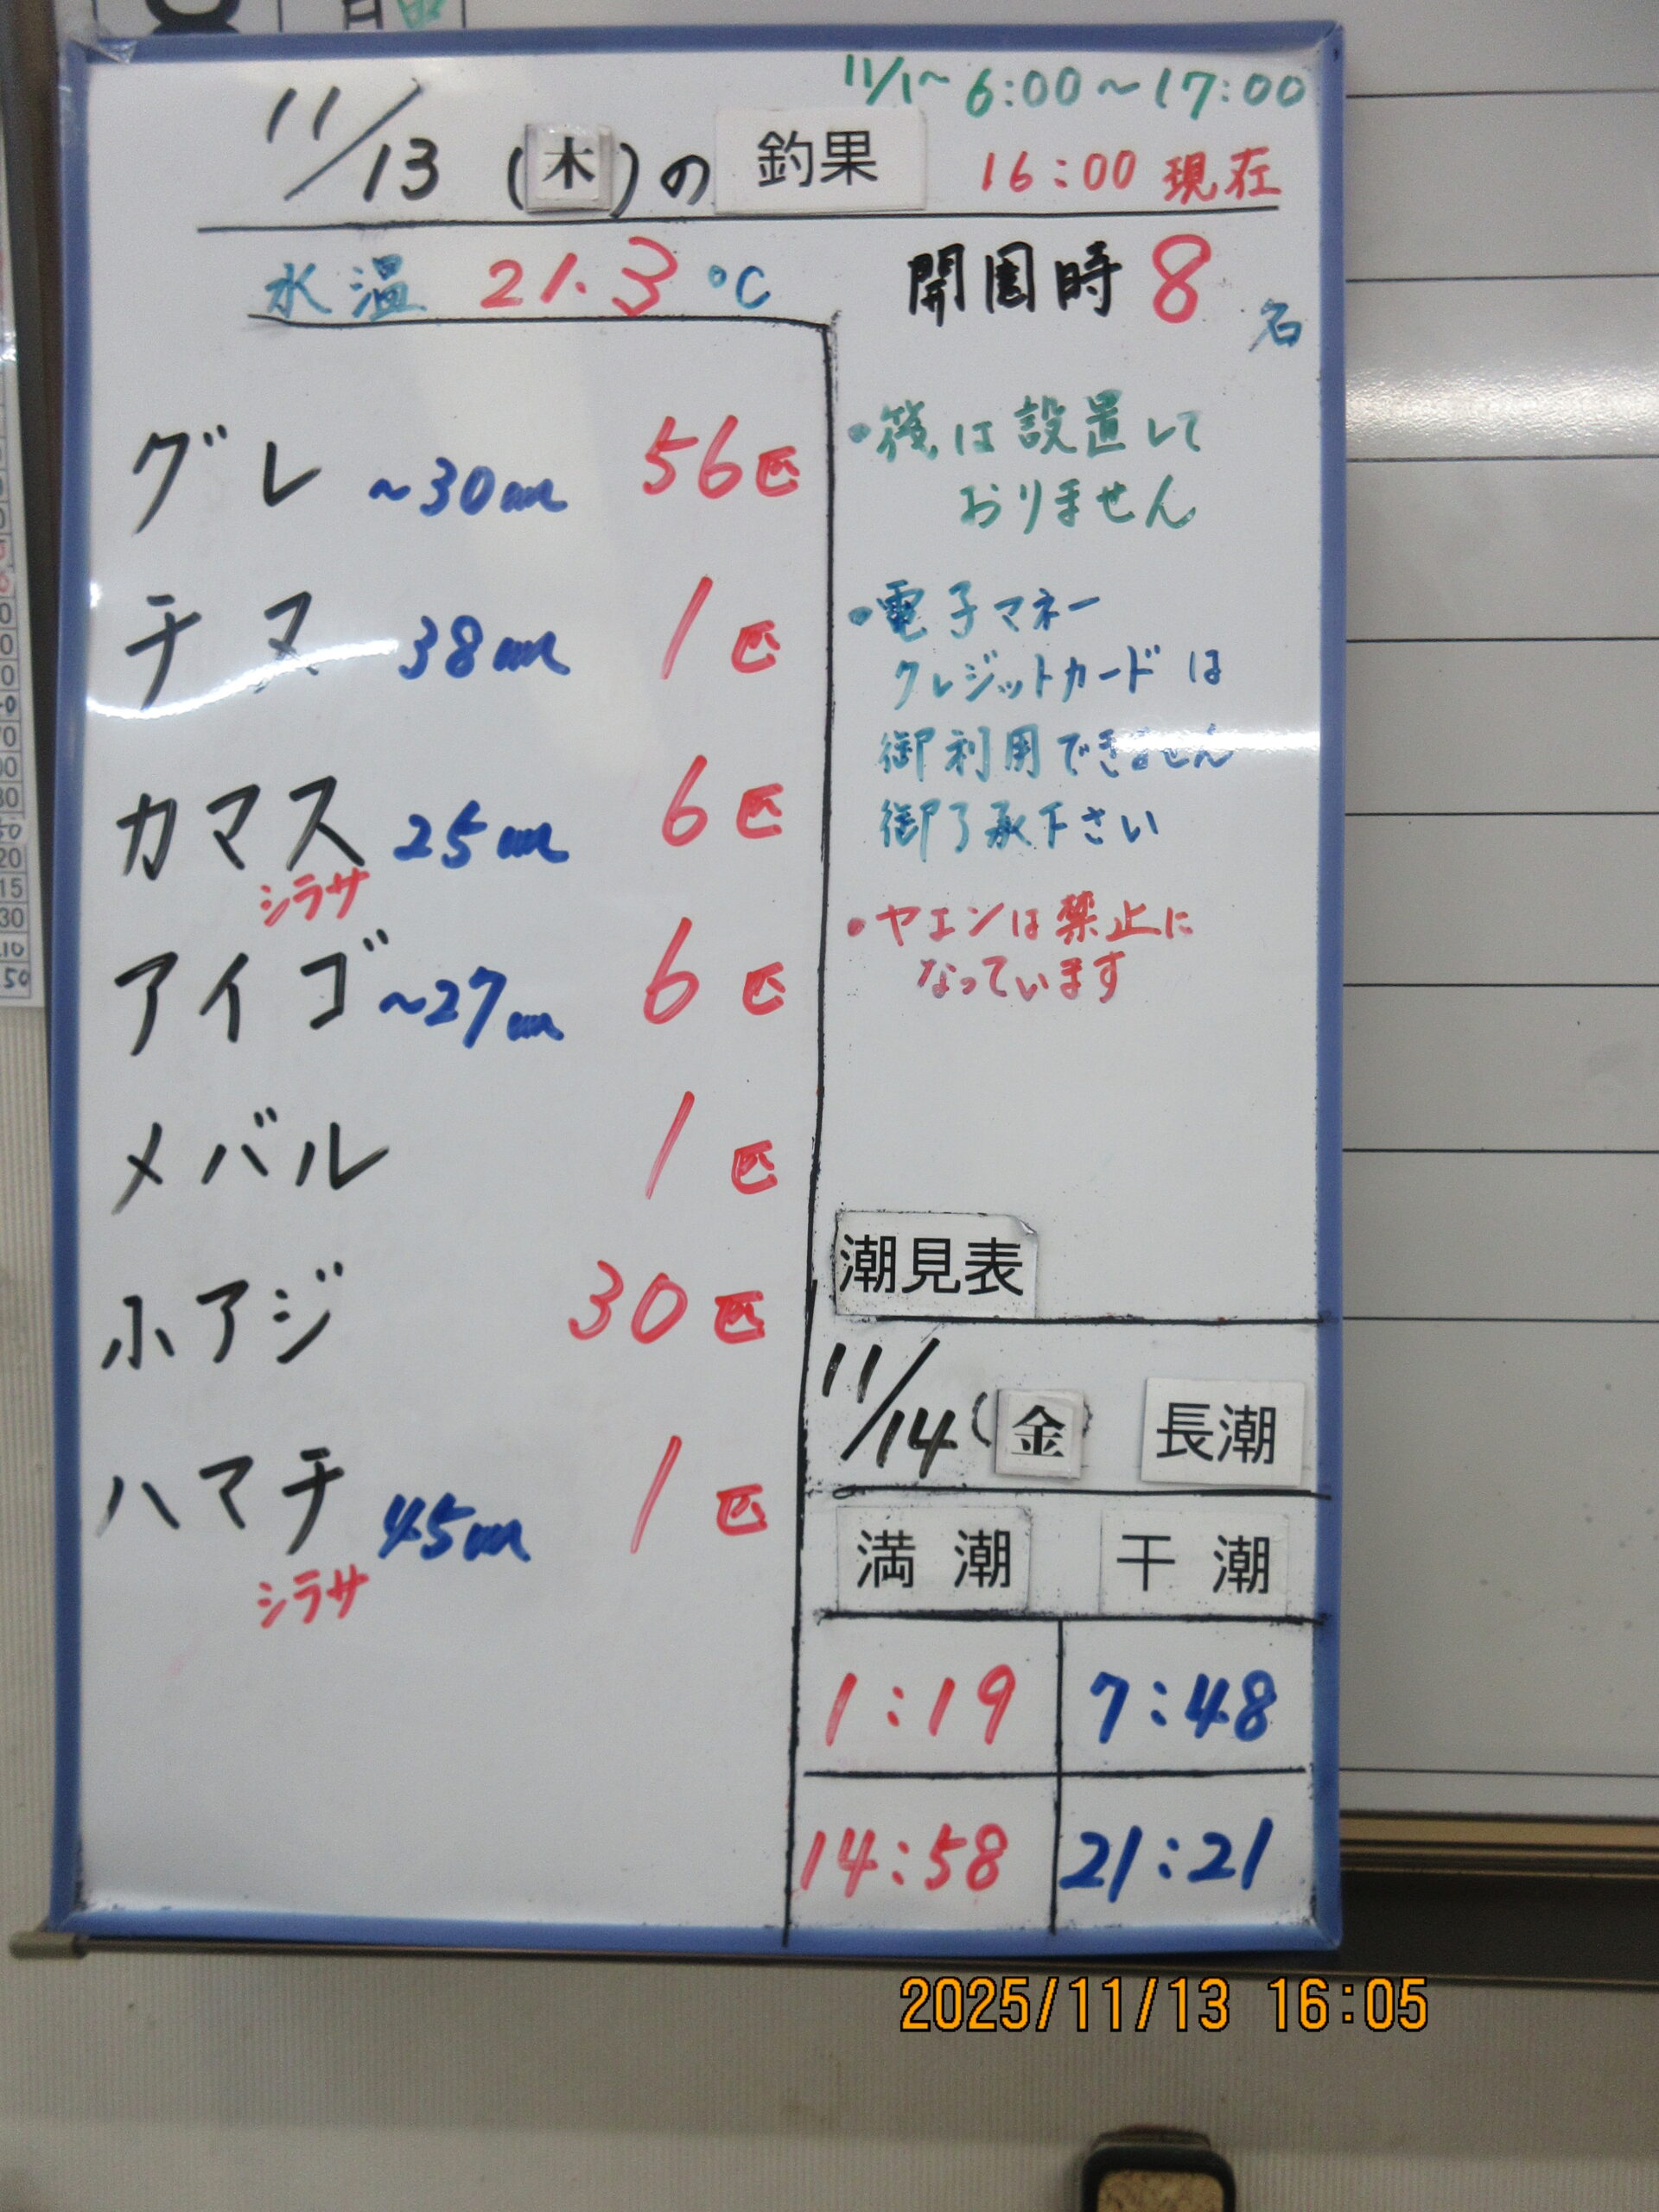 11/1〜 6:00〜17:00
11/13 (木)の 釣果 16:00 現在
水温 21.3 ℃
開園時 8名
グレ 〜30cm 56匹
チヌ 38cm 1匹
カマス 25cm 6匹
シラサ
アイゴ 〜27cm 6匹
メバル 1匹
小アジ 30匹
ハマチ 45cm 1匹
シラサ
は設置して
おりません
・電子マネー
クレジットカードは
御利用できません
御了承下さい
・ヤエンは禁止に
なっています
潮見表
11/14 (金) 長潮
満潮 干潮
1:19 7:48
14:58 21:21
2025/11/13 16:05